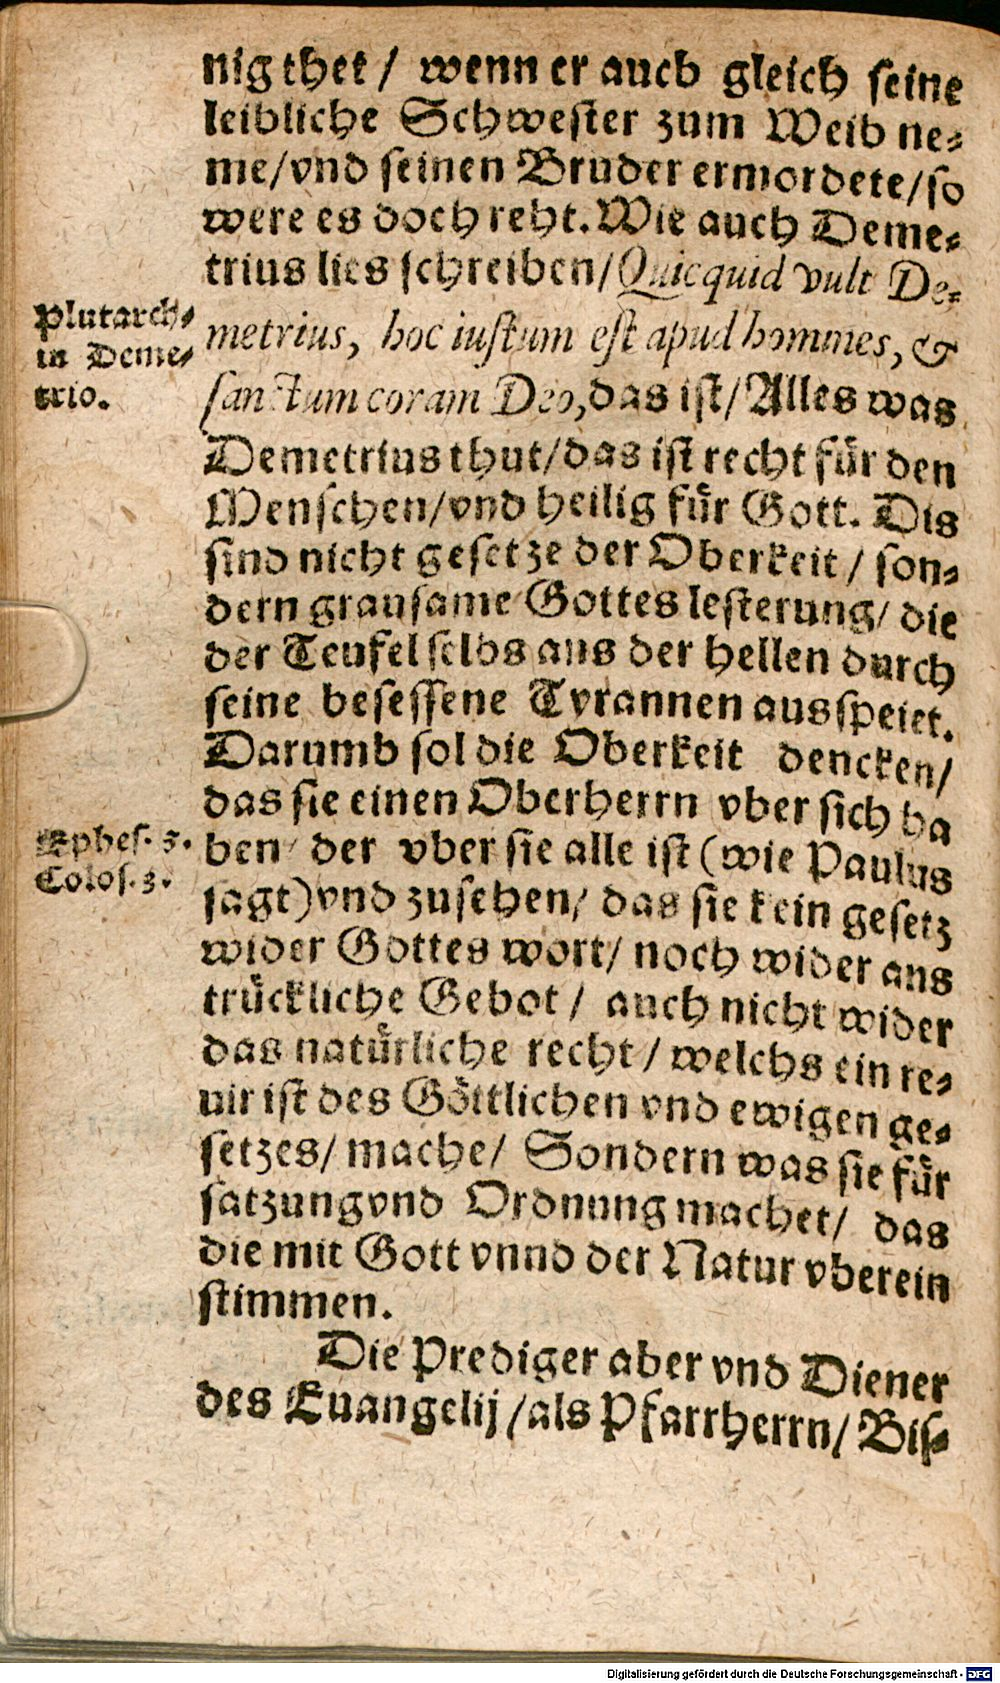 nig thet / wenn er auch gleich seine
leibliche Schwester zum Weib ne-
me/vnd seinen Bruder ermordete/so
were es doch reht. Wie auch Deme-
trius lies schreiben/Quicquid vult De-
metrius, hoc iustum est apud homines, &
sanctum coram Deo, das ist/ Alles was
Plutarch-
in Deme-
trio.
Demetrius thut/das ist recht für den
Menschen/vnd heilig für Gott. Dis
sind nicht gesetze der Oberkeit / son-
dern grausame Gottes lesterung/ die
der Teufel selbs aus der hellen durch
seine besessene Tyrannen ausspeiet.
Darumb sol die Oberkeit dencken/
das sie einen Oberherrn vber sich ha
ben/ der vber sie alle ist (wie Paulus
sagt) vnd zusehen/ das sie kein gesetz
Ephes. 5.
Colos. 3.
wider Gottes wort/ noch wider aus
trückliche Gebot / auch nicht wider
das natürliche recht / welchs ein re-
uir ist des Göttlichen vnd ewigen ge-
setzes/ mache/ Sondern was sie für
satzung vnd Ordnung machet/ das
die mit Gott vnnd der Natur vberein
stimmen.
Die Prediger aber vnd Diener
des Euangelij /als Pfarrherrn/ Bis-
Digitalisierung gefördert durch die Deutsche Forschungsgemeinschaft - DFG